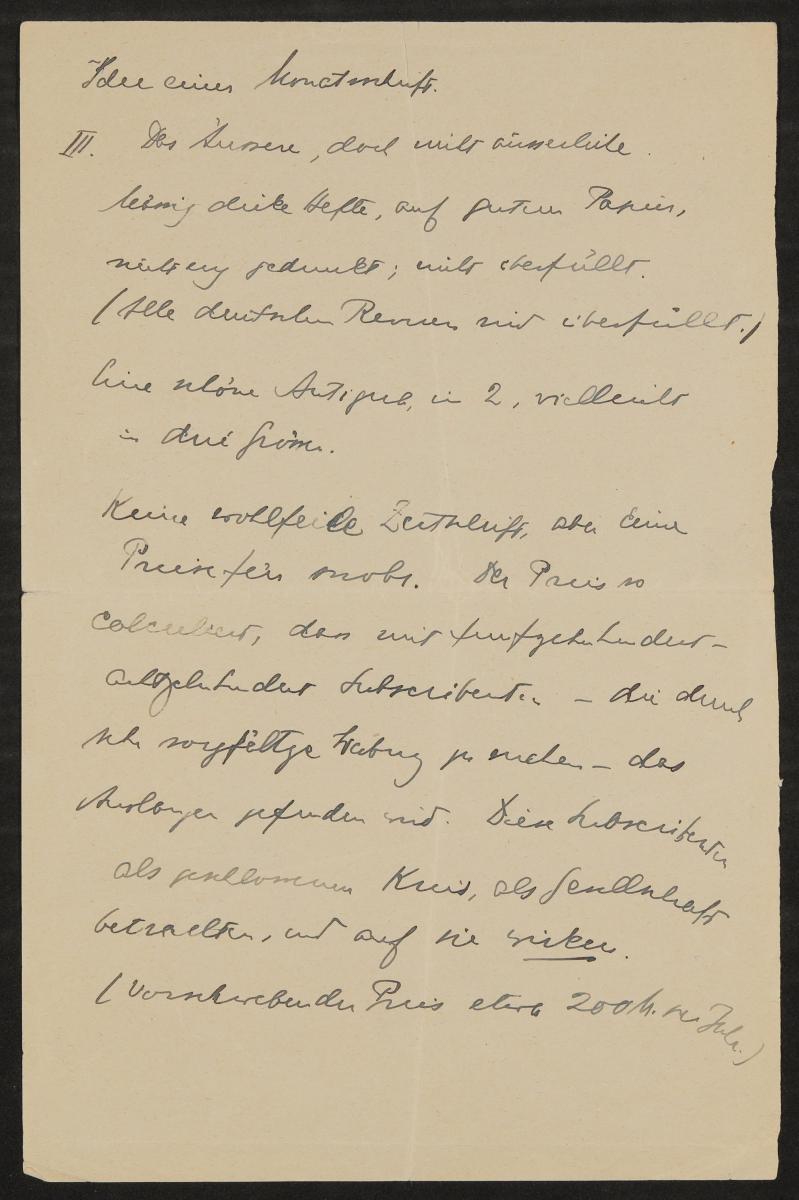 Idee einer Monatsschrift.
III. Das Äussere, doch nicht äusserliche.
Mässig dicke Hefte, auf gutem Papier,
nicht eng gedruckt; nicht überfüllt.
(Alle deutschen Revuen sind überfüllt.)
Eine schöne Antiqua, in 2, vielleicht
in drei Grössen.
Keine wohlfeile Zeitschrift, aber keine
Preise für snobs. Der Preis so
calculiert, dass mit fünfzehnhundert –
achtzehnhundert Subscribenten – die durch
sehr sorgfältige Werbung zu suchen – das
Auslangen gefunden wird. Diese Subscribenten
als geschlossenen Kreis, als Gesellschaft
betrachten, und auf sie wirken.
(Vorschwebender Preis etwa 200 M. per Jahr.)